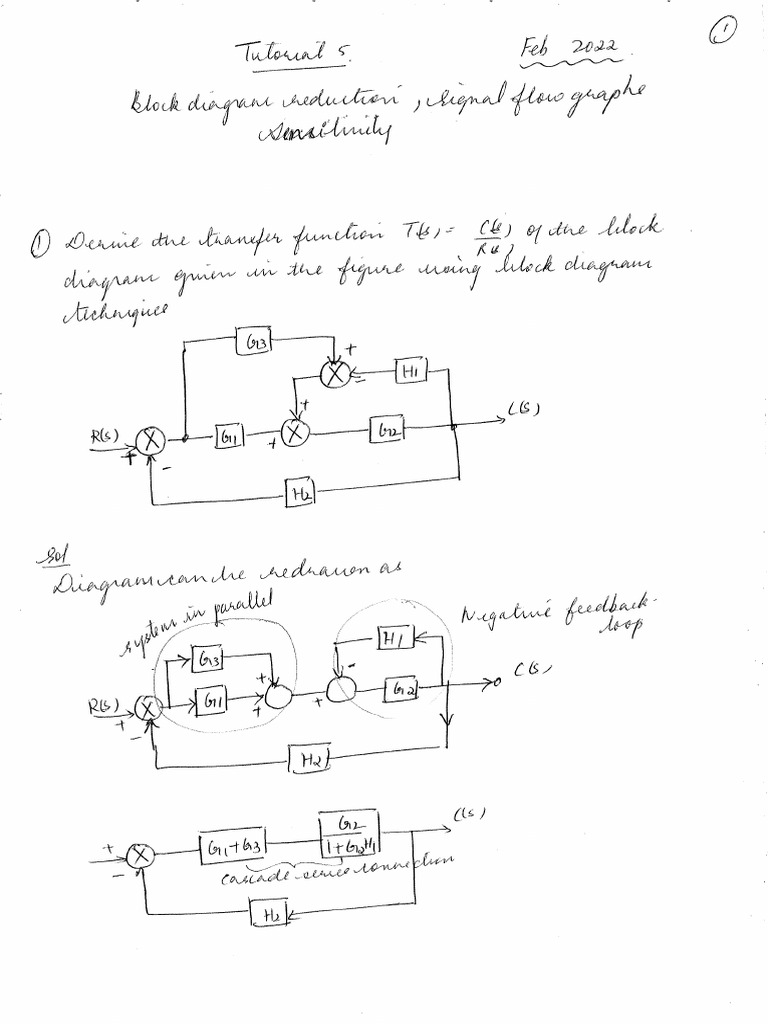 1
Tutorial 5.
Feb 2022
Block diagram reduction, signal flow graphs
sensitivity
① Derive the transfer function T(s) = C(s)/R(s) of the block
diagram given in the figure using block diagram
techniques
G3
+
X
-
H1
+
R(s)
+
X
-
G1
+
X
G2
C(s)
H2
Sol
Diagram can be redrawn as
system in parallel
Negative feedback
loop
H1
G3
+
-
R(s)
+
X
-
G1
+
+
G2
C(s)
H2
+
X
-
G1+G3
G2
1+G2H1
C(s)
cascade series connection
H2